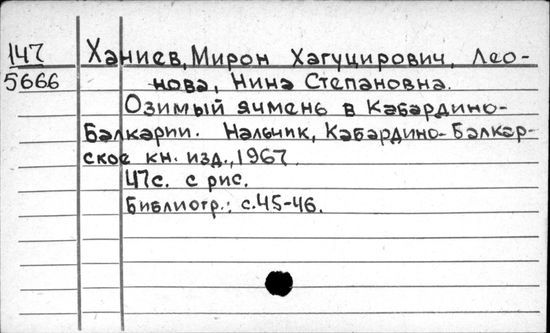 147 Ханиев, Мирон Хагуцирович, Лео-
5666 нова, Нина Степановна.
Озимый ячмень в Кабардино-
Балкарии. Нальчик, Кабардино-Балкар-
ское кн. изд., 1967
47с. с рис.
Библиогр.: с.45-46.